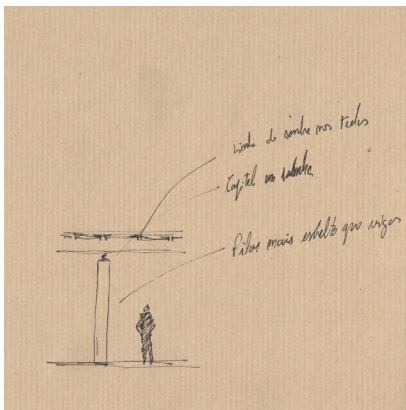 Linha de sombra nos tectos
Capitel em sombra
Pilar mais esbelto que vigas